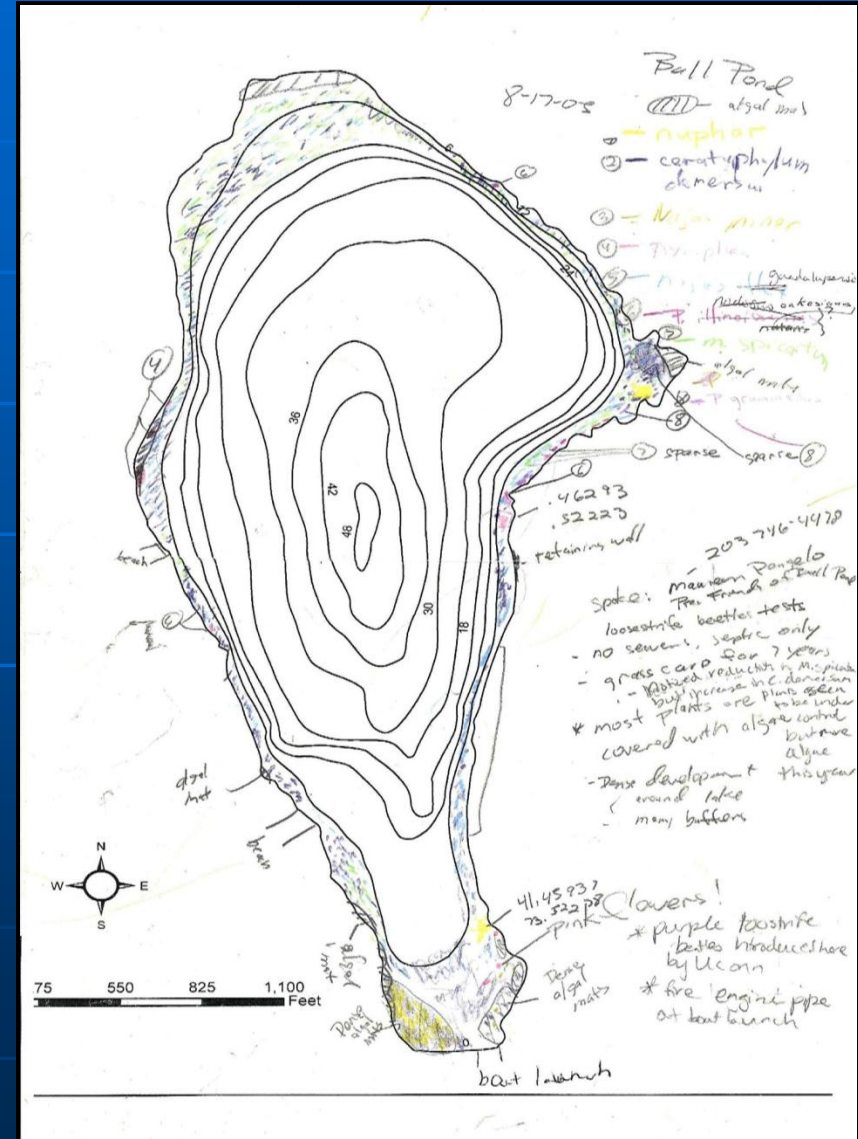 Ball Pond
8-17-05
algal mats
nuphar
② ceratyphylum
demersum
③ Najas minor
④ Nymphea
⑤ Najas guadalupensis
⑥ P.
⑦ M. spicatum
algal mats
⑧ P
⑧
⑦ sparse
sparse ⑧
⑥
6
24
⑥
④
36
42
48
30
18
.46293
.52223
retaining wall
beach
203 746-4478
spoke: Maureen
Pres Friends of Ball Pond
loosestrife beetles tests
- no sewers, septic only
- grass carp for 7 years
- Noticed reduction in M. spicatum
but increase in C. demersum
* most plants are
covered with algae
plants seem
to be under
control
but more
algae
this year
- Dense development
around lake
- many buffers
algal
mat
beach
N
W E
S
41.45937
73.52278
pink flowers!
* purple loostrife
beetles introduced here
by UConn
* fire engine pipe
at boat launch
algal
mat
Dense
algal
mats
75 550 825 1,100
Feet
Dense
algal
mats
0
boat launch